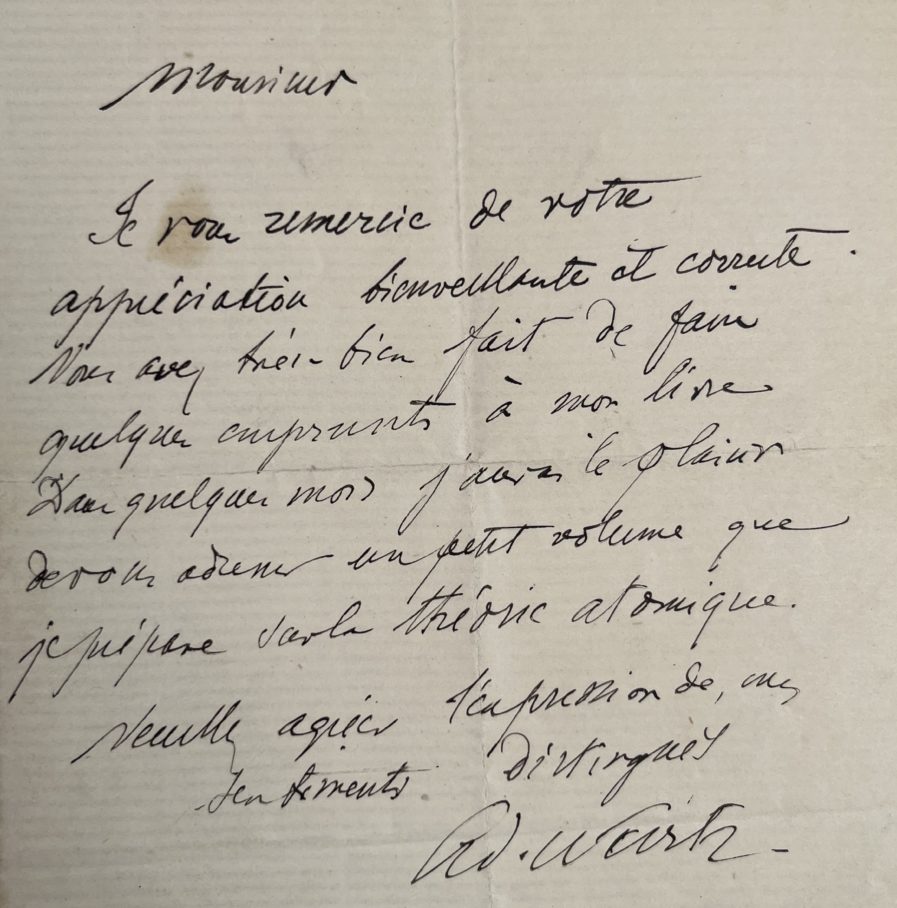 Monsieur
Je vous remercie de votre
appréciation bienveillante et correcte.
Vous avez très-bien fait de faire
quelques emprunts à mon livre
Dans quelques mois j'aurai le plaisir
de vous adresser un petit volume que
je prépare sur la théorie atomique.
Veuillez agréer l'expression de mes
sentiments distingués
Ad. Wurtz